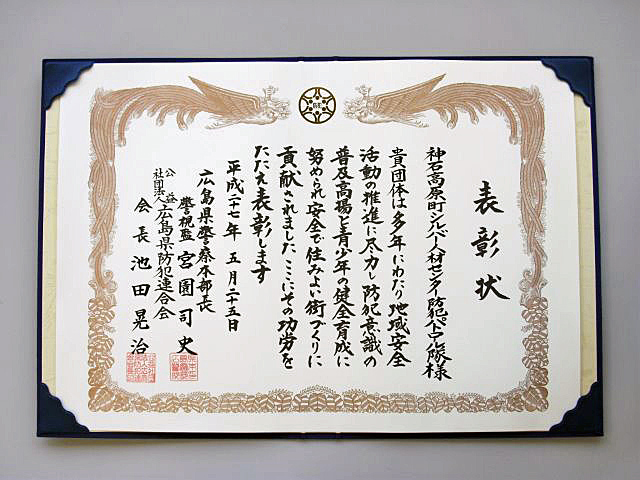 表彰状
神石高原町シルバー人材センター防犯パトロール隊様
貴団体は多年にわたり地域安全
活動の推進に尽力し防犯意識の
普及高揚と青少年の健全育成に
努められ安全で住みよい街づくりに
貢献されましたここにその功労を
たたえ表彰します
平成二十七年五月二十五日
広島県警察本部長
警視監 宮園司史
公益社団法人広島県防犯連合会
会長 池田晃治